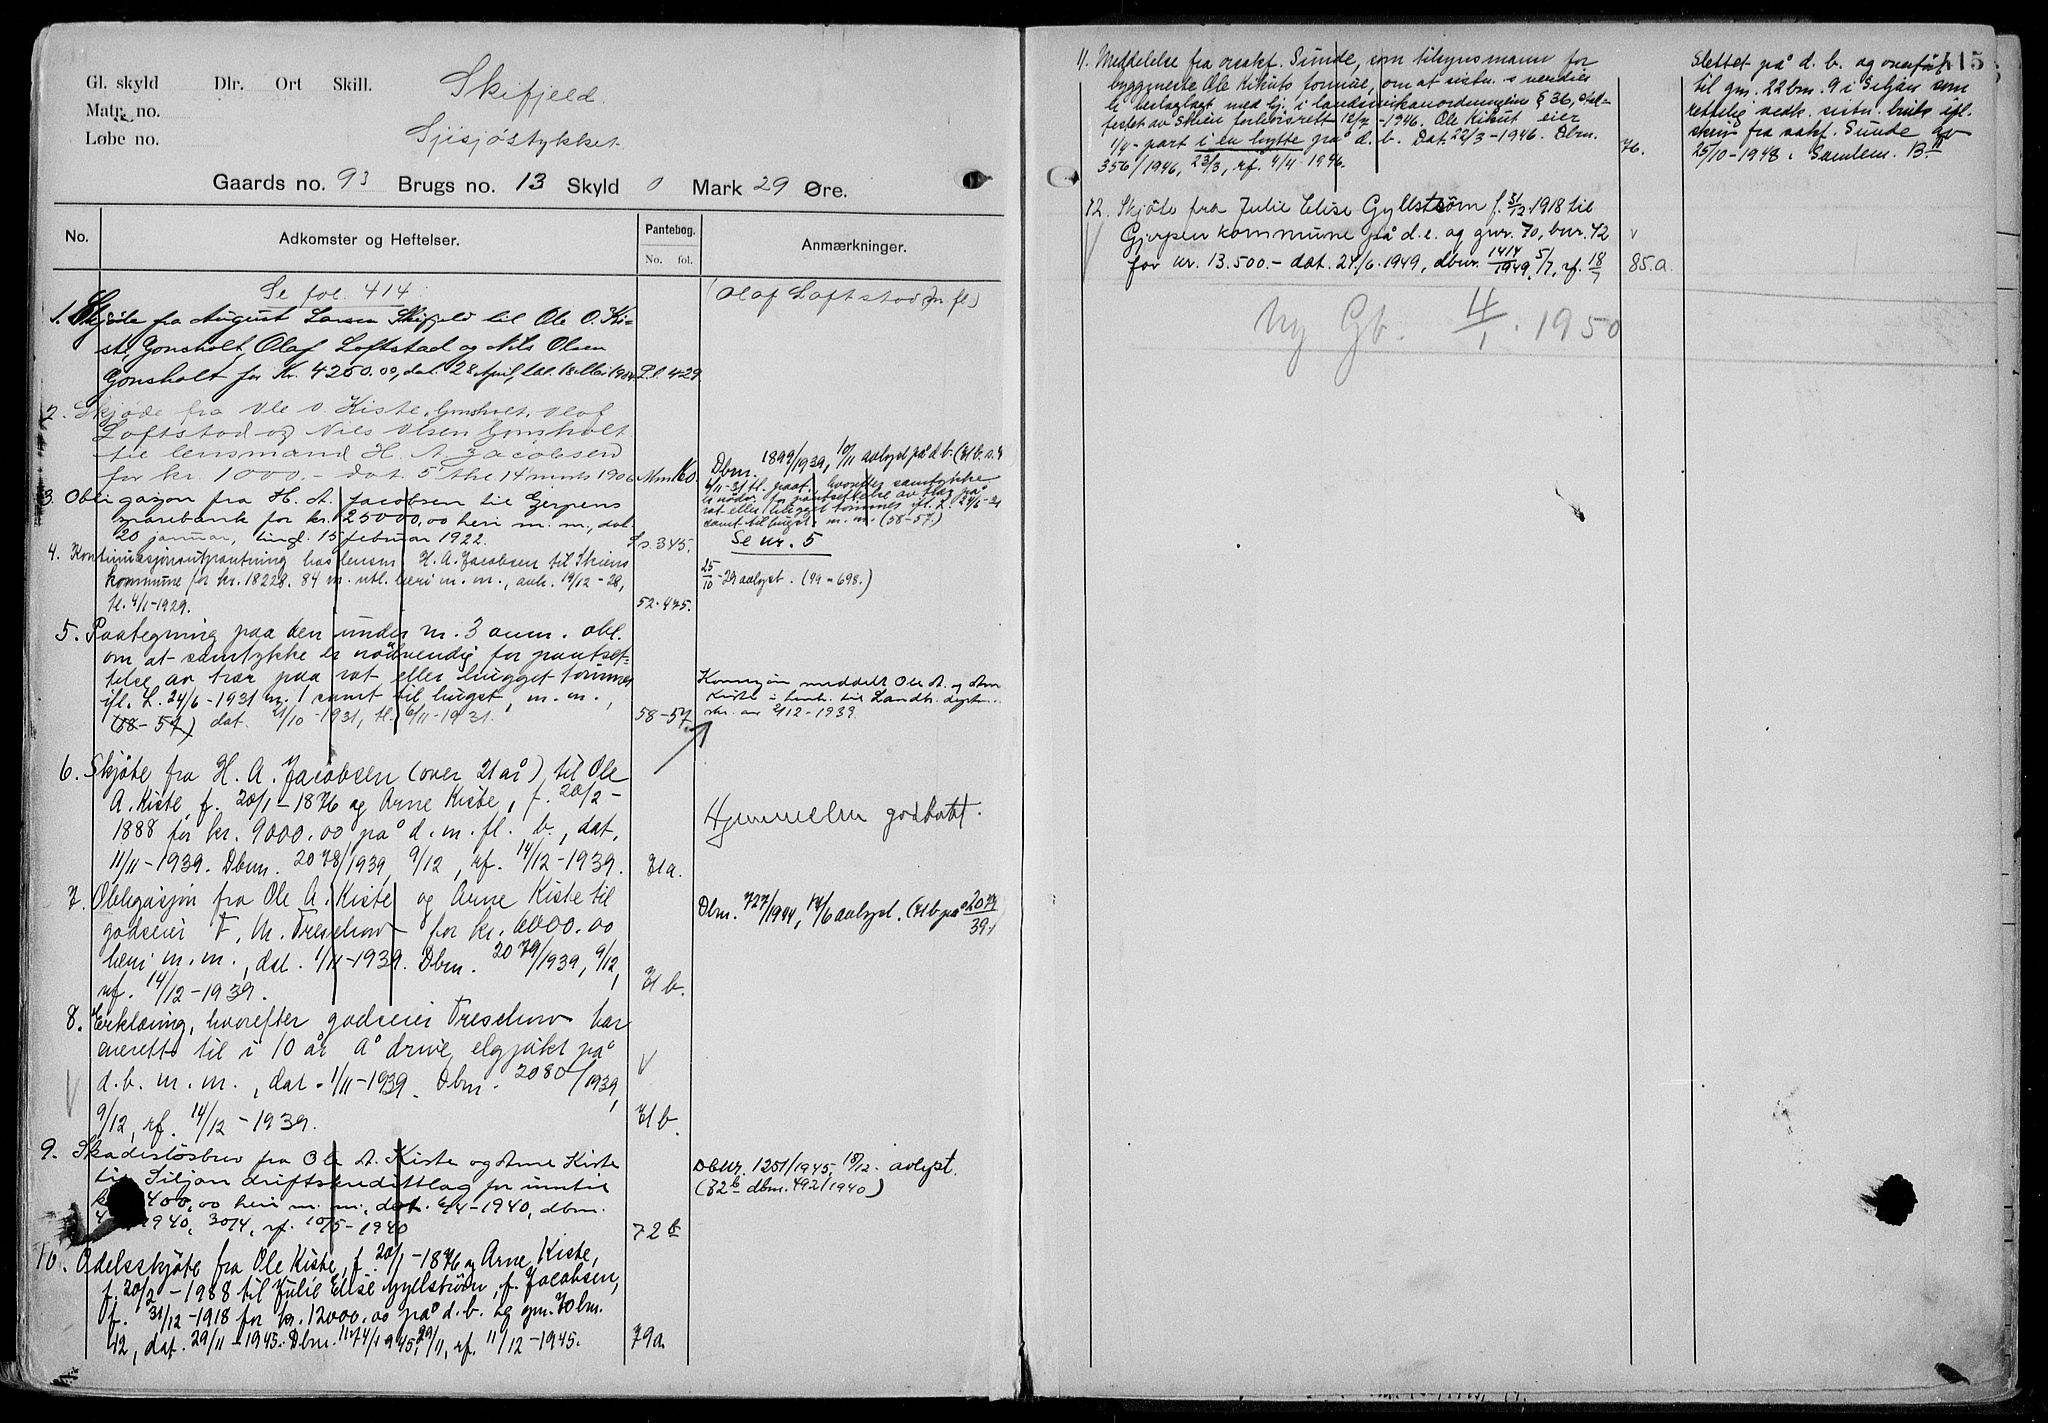 Gl. skyld Dlr. Ort Skill.
Matr. no.
Løbe no.
Skifjeld.
Sjisjøstykket.
Gaards no. 93 Brugs no. 13 Skyld 0 Mark 29 Øre.
No. Adkomster og Heftelser. Pantebog. No. fol. Anmærkninger.
Se fol. 414 (Olaf Loftstad m fl)
1. Skjøde fra August Larsen Skifjeld til Ole O. Ki-
ste, Gonsholt, Olaf Loftstad og Nils Olsen
Gonsholt for Kr. 4250.00, dat. 28 April, tol. 18 Mai P.l 429
2. Skjøde fra Ole O Kiste, Gonsholt, Olaf
Loftstad og Niels Olsen Gonsholt
til lensmand H A Jacobsen
for kr. 1000.- dat. 5 thl 14 1906
Dbnr. 1899/1939, 10/11 avlyst på d.b.
3. Obligasjon fra H. A. Jacobsen til Gjerpens
sparebank for kr. 25000,00 heri m. m., dat.
20 januar, tingl. 15 februar 1922. 345.
6/11-31 tl. paat. hvorefter samtykke
er nødv. for pantsettelse av trær på
rot eller hugget tømmer ifl. L. 24/6-31
samt til hugst m. m. (58-57.)
Se nr. 5
4. Kontinuasjonsutpantning hos lensm. H. A. Jacobsen til Skiens
kommune for kr. 18228.84 m. utl. heri m. m., avh. 19/12-28,
tl. 4/1-1929. 52-475.
25/10-29 avlyst. (99-698.)
5. Paategning paa den under nr. 3 anm. obl.
om at samtykke er nødvendig for pantset-
telse av trær paa rot eller hugget tømmer
ifl. L. 24/6-1931 m. samt til hugst, m. m.,
(58-57) dat. /10-1931, tl. 6/11-1931. 58-57.
Konsesjon meddelt Ole A. og Arne
Kiste - henh. til Landbr. dept.
skr. av 2/12-1939.
6. Skjøte fra H. A. Jacobsen (over 21 år) til Ole
A. Kiste, f. 20/1-1876 og Arne Kiste, f. 20/2-
1888 for kr. 9000.00 på d. m. fl. b., dat.
11/11-1939. Dbnr. 2078/1939, 9/12, rf. 14/12-1939. 71a.
Hjemmelen godtatt.
7. Obligasjon fra Ole A. Kiste og Arne Kiste til
godseier F. M. Treschow for kr. 6000.00
heri m. m., dat. 1/11-1939. Dbnr. 2079/1939, 9/12,
rf. 14/12-1939. 71 b.
Dbnr. 727/1944, 14/6 avlyst. (71 b på 2079/39.)
8. Erklæring, hvorefter godseier Treschow har
enerett til i 10 år å drive elgjakt på
d. b. m. m., dat. 1/11-1939. Dbnr. 2080/1939,
9/12, rf. 14/12-1939. 71 b.
9. Skadesløsbrev fra Ole A. Kiste og Arne Kiste
til Siljan driftskredittlag for inntil
400,00 heri m. m., dat. 6/4-1940, dbnr.
1940, 30/4, rf. 10/5-1940 72 b
Dbnr. 1251/1945, 18/12. avlyst.
(72b dbnr. 492/1940)
10. Odelsskjøte fra Ole Kiste, f. 20/1-1876 og Arne Kiste,
f. 20/2-1988 til Julie Elise Gyllstrøm, f. Jacobsen,
f. 31/12-1918 for kr. 12000.00 på d.b. og gnr. 70 bnr.
42, dat. 29/11-1945. Dbnr. 1174/1945, 29/11, rf. 11/12-1945. 79a.
115
11. Meddelelse fra orsakf. Sunde, som tilsynsmann for
byggmeste Ole Kikuts formue, om at sistn.s verdier
er beslaglagt med hj. i landssvikanordningens § 36, stad-
festet av Skien forhørsrett 12/7-1946. Ole Kikut eier
1/4-part i en hytte på d. b. Dat. 22/3-1946. Dbnr.
356/1946, 23/3, rf. 4/4 1946. 76.
Slettet på d. b. og overført
til gnr. 22 bnr. 9 i Siljan som
rettelig vedk. sistn. bruk ifl.
skriv fra sakf. Sunde av
25/10-1948. Samlem. B II
12. Skjøte fra Julie Elise Gyllstrøm f. 31/12 1918 til
Gjerpen kommune på d.e. og gnr. 70, bnr. 42
for kr. 13.500.- dat. 24/6.1949, dbnr. 1414/1949, 5/7, rf. 18/7 85.a.
Ny Gb. 4/1. 1950